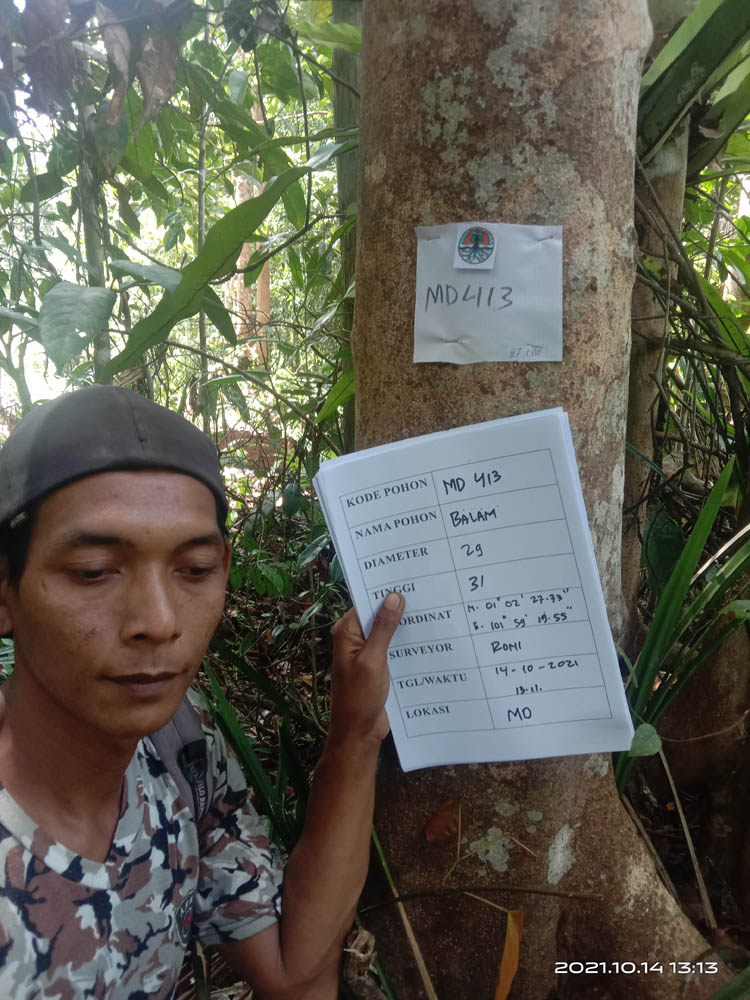 MD413
87 cm
KODE POHON MD 413
NAMA POHON BALAM
DIAMETER 29
TINGGI 31
ORDINAT N. 01° 02' 27.73"
E. 101° 59' 19.55"
SURVEYOR ROMI
TGL/WAKTU 14-10-2021
13.11.
LOKASI MD
2021.10.14 13:13